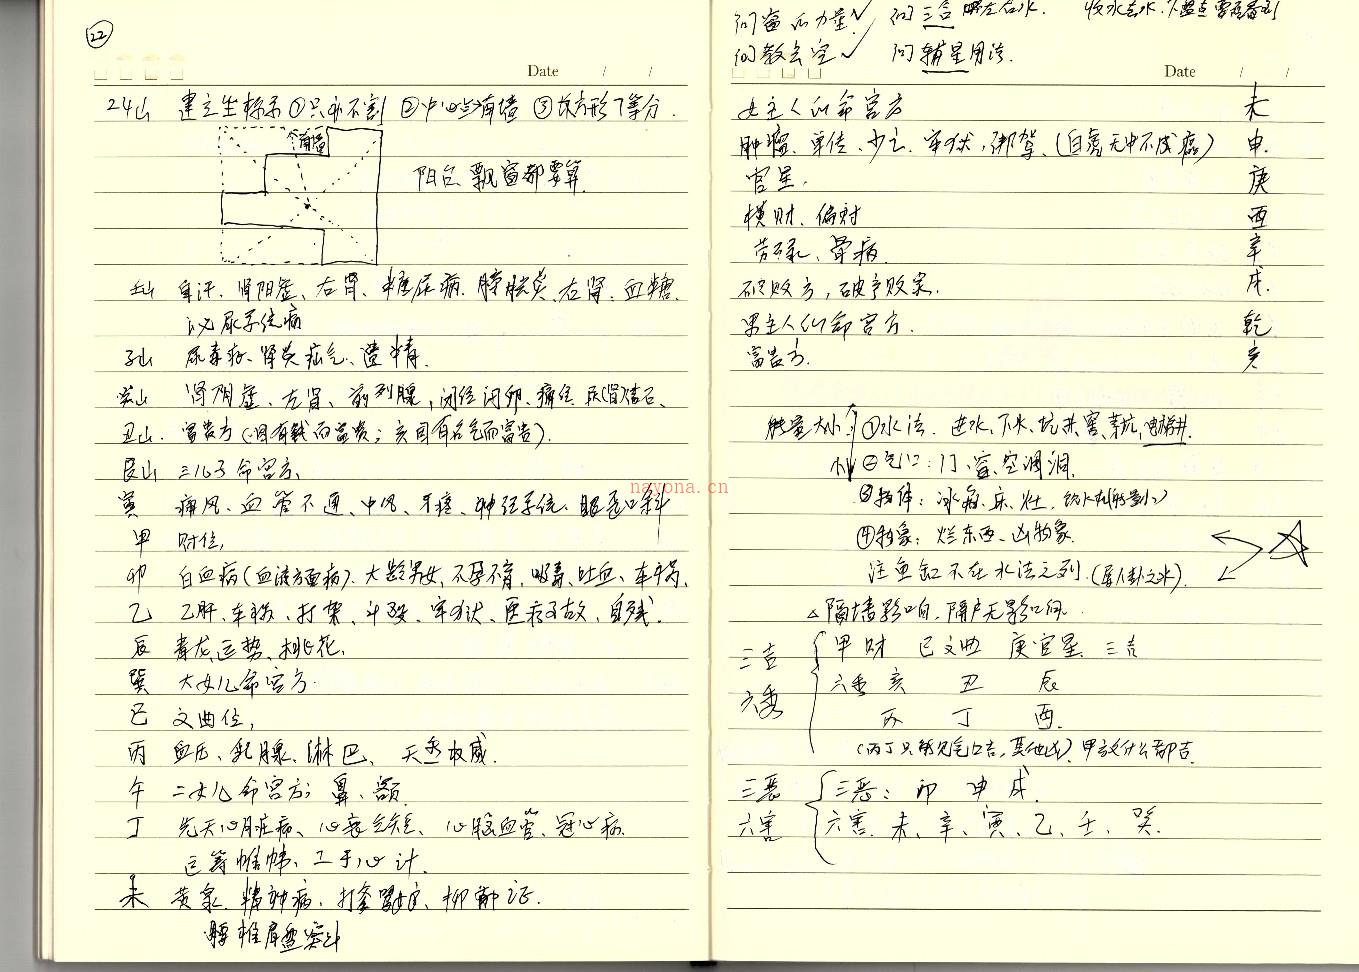 22
Date / /
24山 建立坐标系 ①只补不割 ②中心点 有墙 ③长方形7等分.
有墙
阳台 飘窗都要算.
壬山 自汗、肾阳虚、右肾、糖尿病、膀胱炎、右肾、血糖.
泌尿系统病
子山 尿毒症、肾炎 疝气、遗精.
癸山 肾阴虚、左肾、前列腺, 闭经 闭卵、痛经 尿(肾)结石、
丑山. 富贵方(因有钱而富贵; 亥因有名气而富贵).
艮山 三儿子命宫方.
寅 痛风、血管不通、中风、牙疼、神经系统、眼 口科
甲 财位,
卯 白血病(血液方面病)、大龄男女、不孕不育、吸毒、吐血、车祸、
乙 乙肝、车祸、打架、斗殴、牢狱、医疗事故、自残.
辰 青龙、运势、桃花.
巽 大女儿命宫方.
巳 文曲位,
丙 血压、乳腺、淋巴、 天 权威.
午 二女儿命宫方; 鼻、额.
丁 先天心脏病、心衰气短、心脑血管、冠心病.
运筹帷幄、工于心计.
未 黄泉、精神病、抑郁证.
腰椎肩盘突出
问窗的力量✓ 问三合 左右水. 收水去水.
问教玄空✓ 问辅星用法.
Date / /
女主人的命宫方 未
肿瘤、单传、少亡、牢狱、绑架、(白虎无申不成癌) 申.
官星. 庚
横财、偏财 酉
劳碌、骨病. 辛
破败方, 破产败家. 戌.
男主人的命宫方. 乾
富贵方. 亥
能量大小 ①水法. 进水、下水、坑井、窖、茅坑、电梯井.
小 ②气口: 门、窗、空调洞.
③物体: 冰箱、床、灶、饮水机(能量小)
④物象: 烂东西、凶物象.
注鱼缸不在水法之列.(属八卦之水).
△ 隔墙影响, 隔户无影响.
三吉 甲财 巳文曲 庚官星 三吉
六秀 六秀 亥 丑 辰
丙 丁 酉.
(丙丁只能见气口吉, 其他凶) 甲方放什么都吉
三恶 三恶: 卯 申 戌.
六害 六害. 未、辛、寅、乙、壬、癸.
nayona.cn